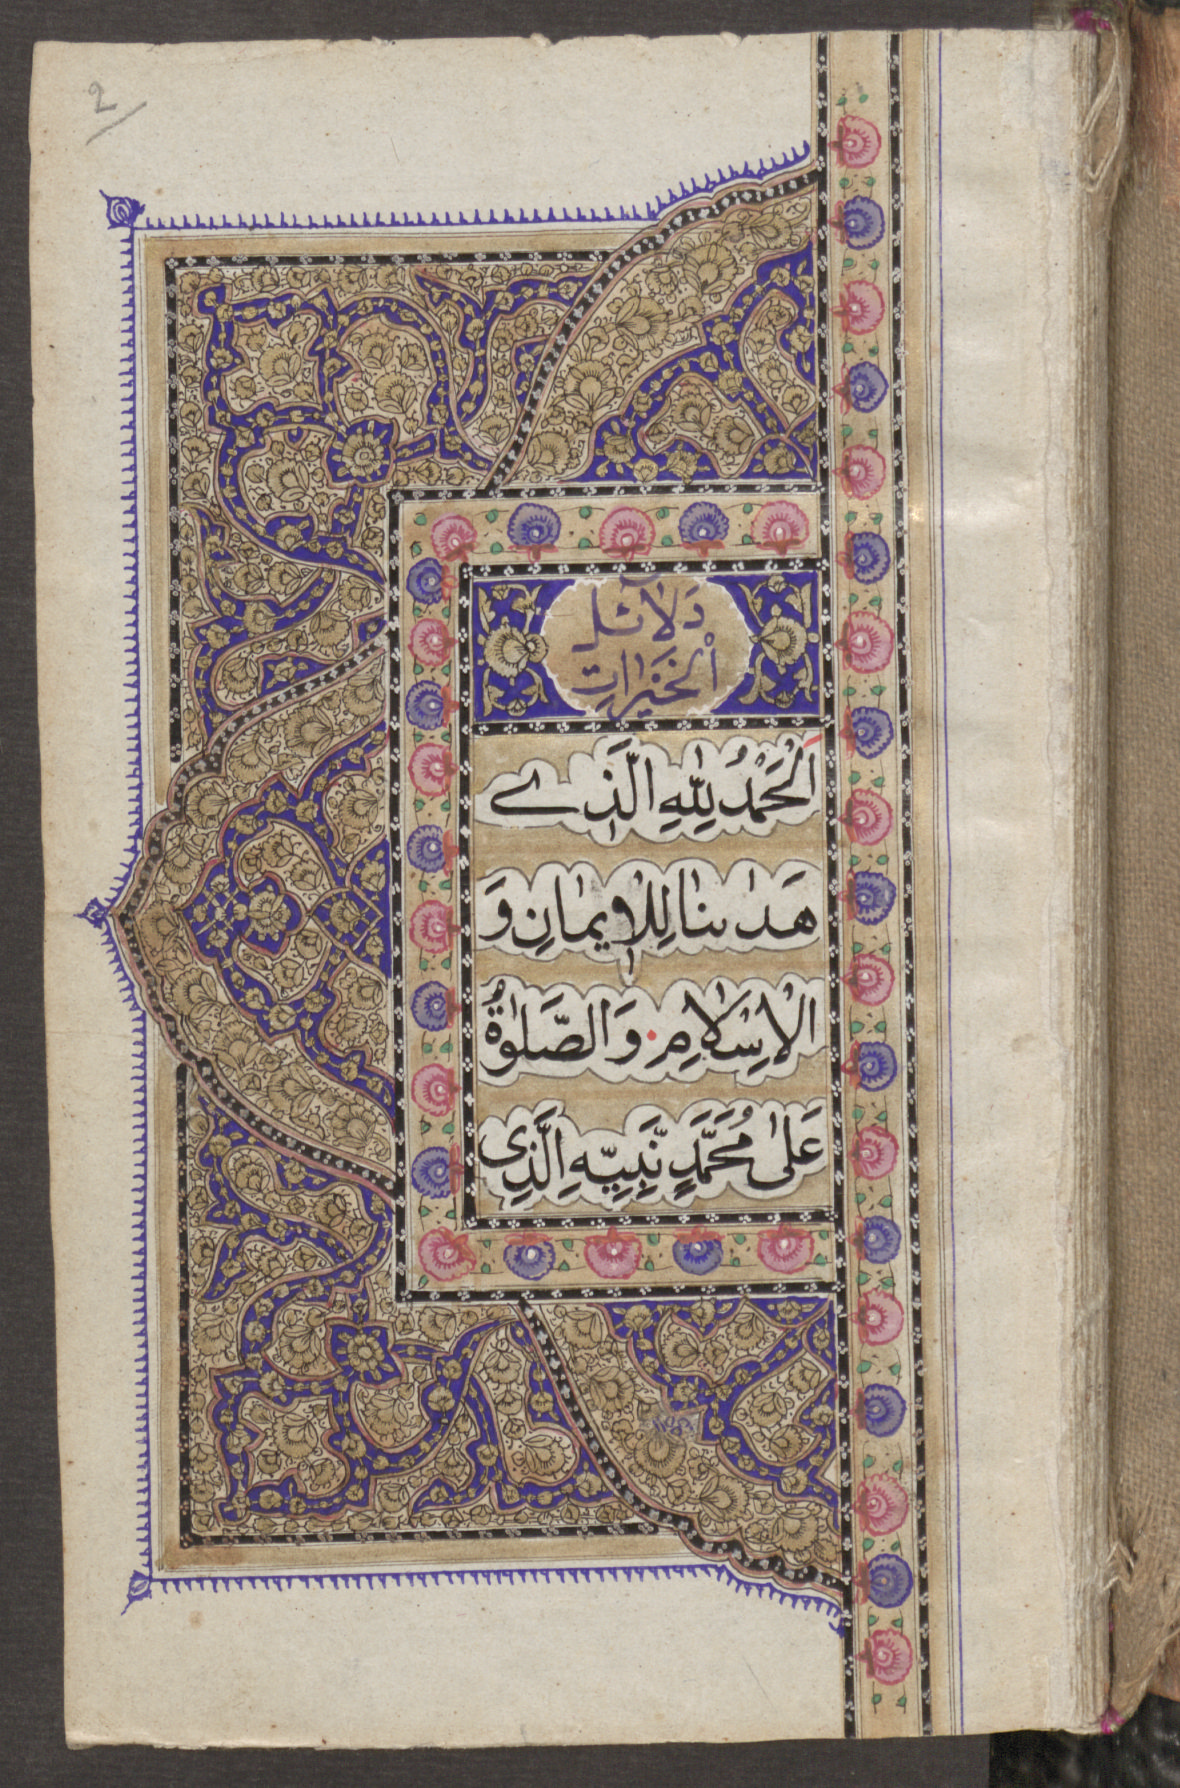 2
دَلَائِل
اَلْخَيْرَات
اَلْحَمْدُ لِلّٰهِ الَّذِے
هَدٰىنَا لِلْاِيمَانِ وَ
الْاِسْلَامِ وَالصَّلٰوةُ
عَلٰى مُحَمَّدٍ نَّبِيِّهِ الَّذِى